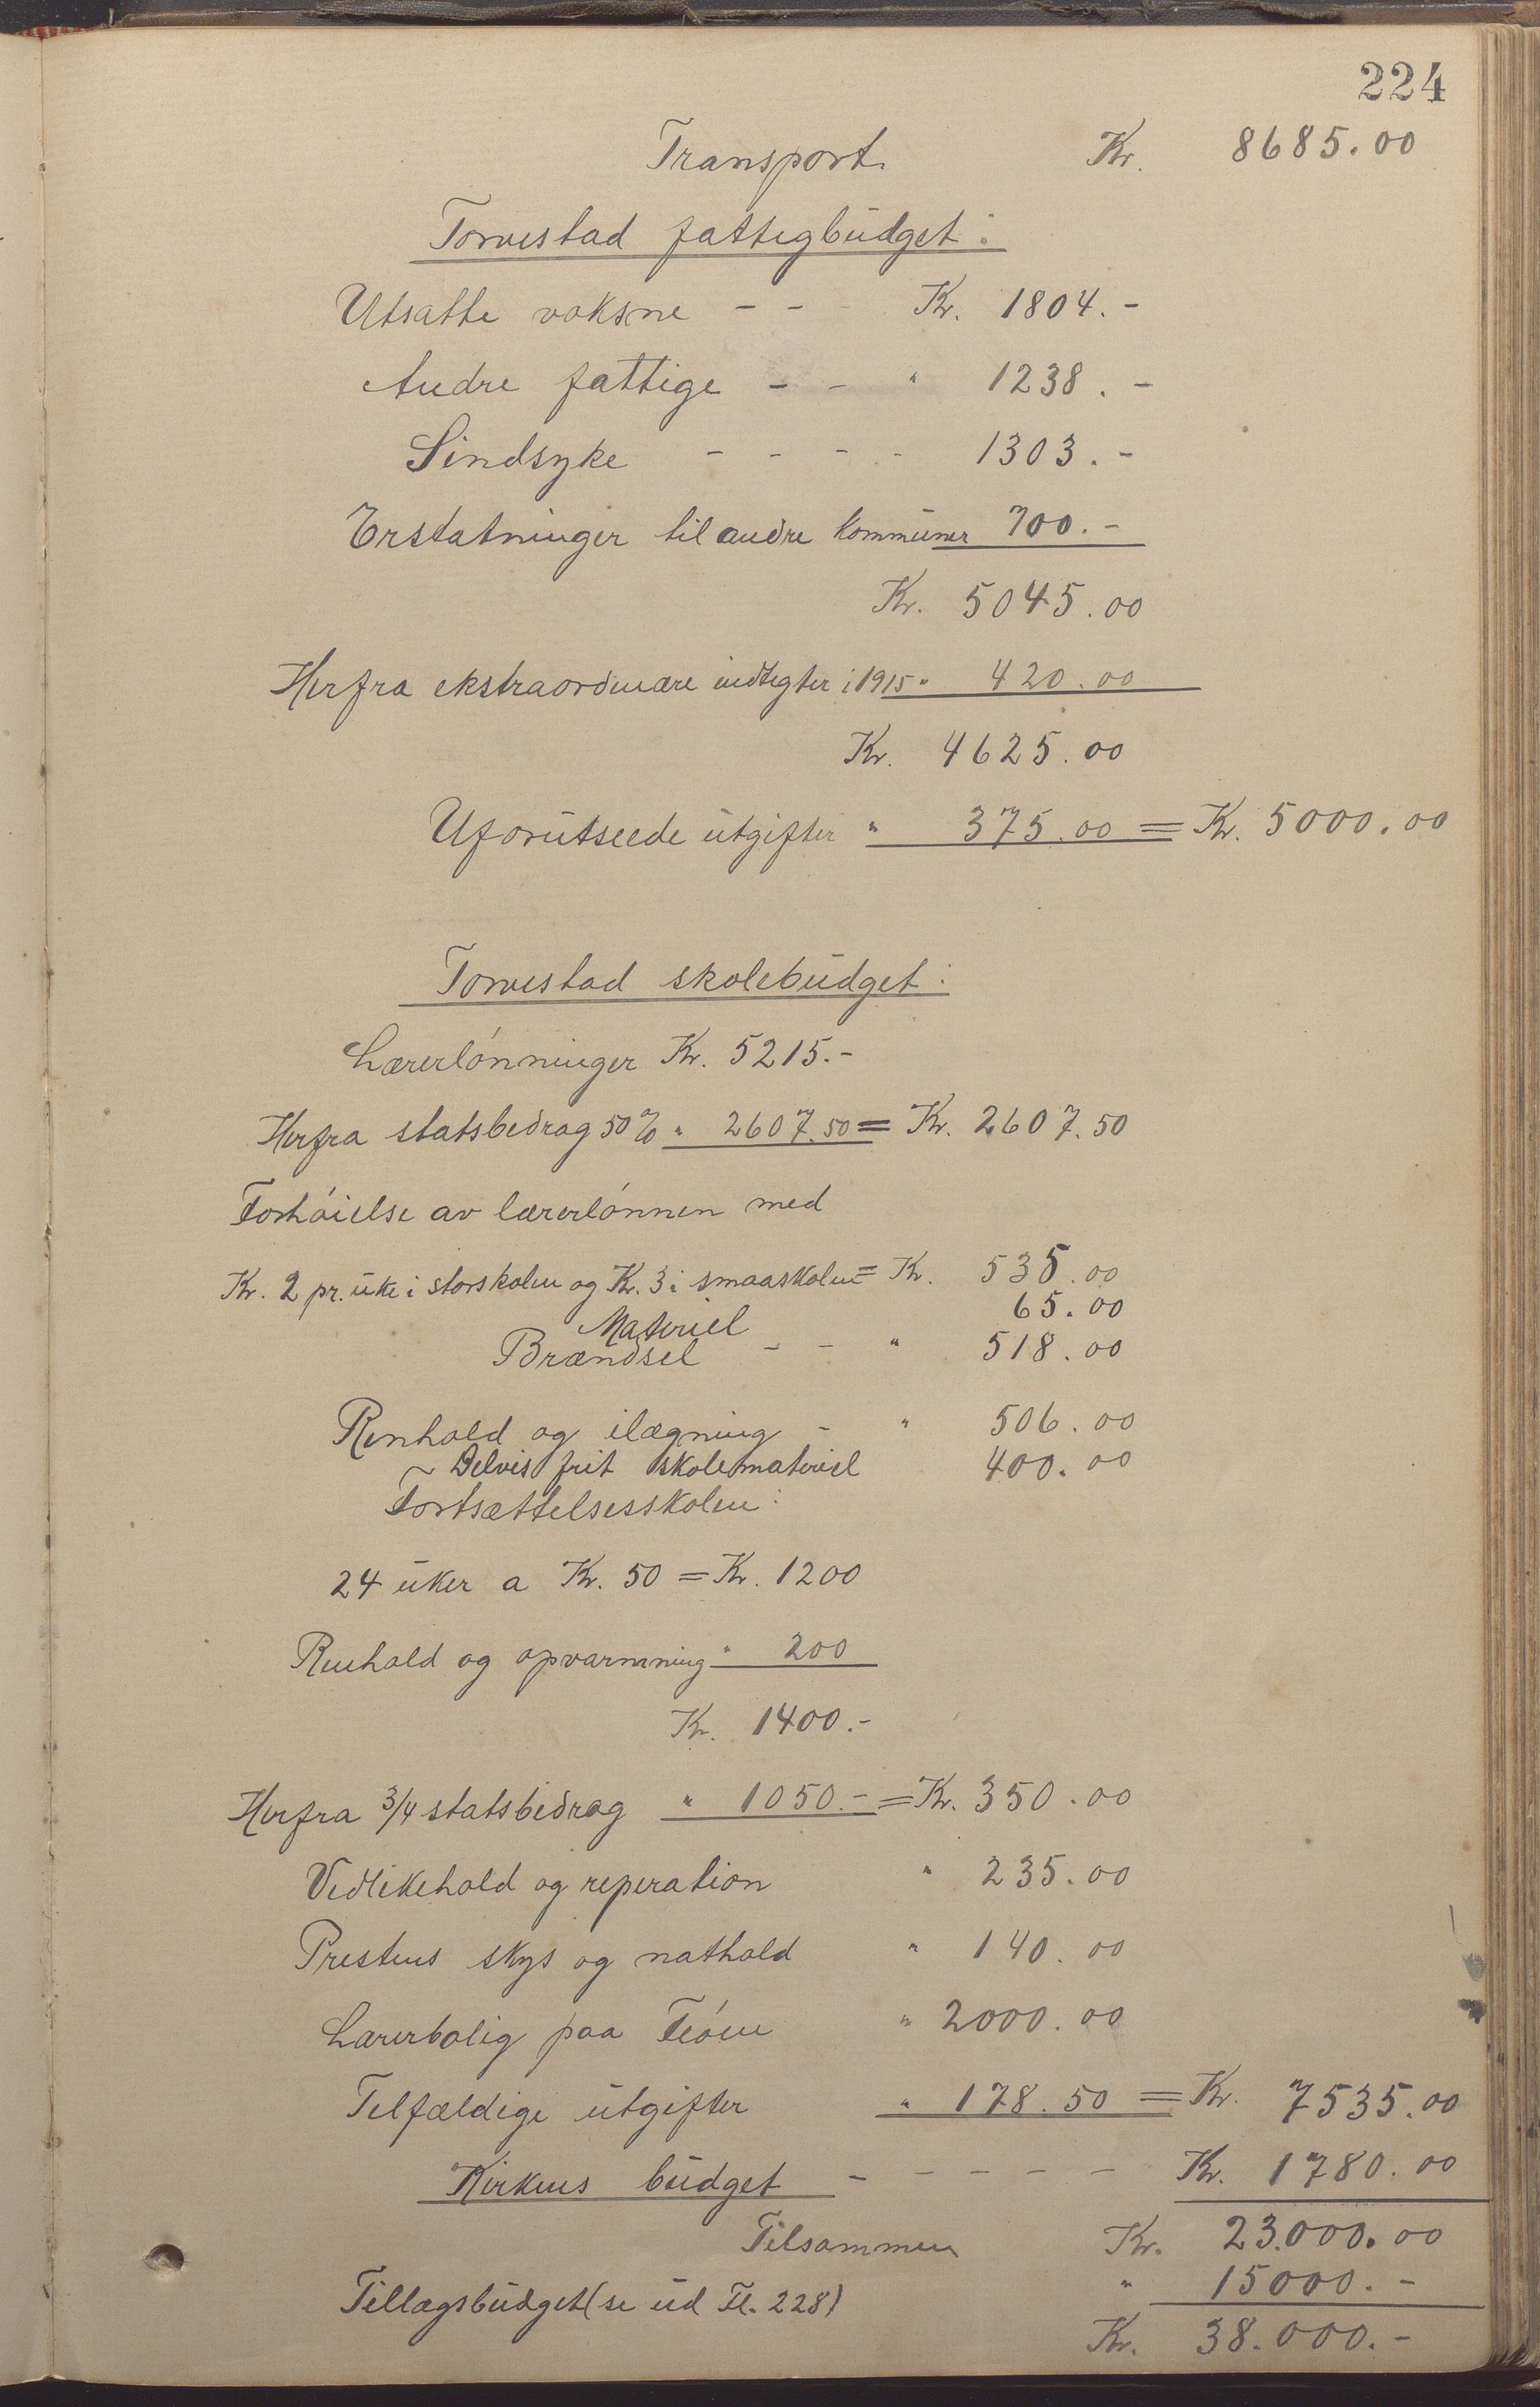 224
Transport. Kr. 8685.00
Torvestad fattigbudget:
Utsatte voksne - - - Kr. 1804.-
Andre fattige - - " 1238.-
Sindsyke - - - - 1303.-
Erstatninger til andre kommuner 700.-
Kr. 5045.00
Herfra ekstraordinære indtegter i 1915 " 420.00
Kr. 4625.00
Uforutseede utgifter " 375.00 = Kr. 5000.00
Torvestad skolebudget:
Lærerlónninger Kr. 5215.-
Herfra statsbedrag 50% " 2607.50 = Kr. 2607.50
Forhóielse av lærerlónnen med
Kr. 2 pr. uke i storskolen og Kr. 3 i smaaskolen = Kr. 535.00
Materiel 65.00
Brændsel - - " 518.00
Renhold og ilægning - " 506.00
Delvis frit skolemateriel 400.00
Fortsættelsesskolen:
24 uker a Kr. 50 = Kr. 1200
Renhold og opvarmning " 200
Kr. 1400.-
Herfra 3/4 statsbidrag " 1050.- = Kr. 350.00
Vedlikehold og reperation " 235.00
Prestens skys og nathold " 140.00
Lærerbolig paa Feóen " 2000.00
Tilfældige utgifter " 178.50 = Kr. 7535.00
Kirkens budget - - - - - Kr. 1780.00
Tilsammen Kr. 23.000.00
Tillægsbudget (se ud Fl. 228) " 15000.-
Kr. 38.000.-